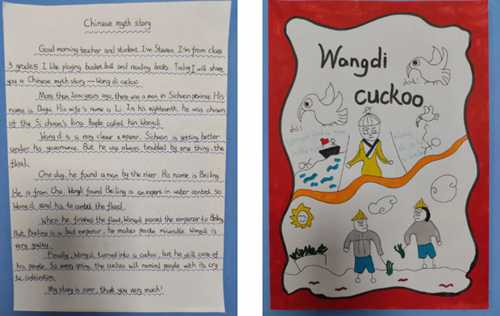 Chinese myth story
Good morning teacher and student. I'm Steven. I'm from class
3 grade5. I like playing basket ball and reading books. Today I will share
you a Chinese myth story — Wangdi cuckoo.
More than 2000 years ago, there was a man in Sichuan province. His
name is Duyu. His wife's name is Li. In his eighteenth, he was chosen
as the Sichuan's king. People called him Wangdi.
Wangdi is a very clever emperor. Sichuan is getting better
under his governance. But he was always troubled by one thing, the
flood.
One day, he found a man by the river. His name is Beiling.
He is from Chu. Wangdi found Beiling is so in water control. So
Wangdi send his to control the flood.
When he finished the flood, Wangdi passed the emperor to Beiling.
But Beiling is a bad emperor, he makes people miserable. Wangdi is
very
Finally, Wangdi turned into a cuckoo, but he still cares of
his people. So every spring, the cuckoo will remind people with its cry
be
My story is over, thank you very much!
Wangdi
cuckoo